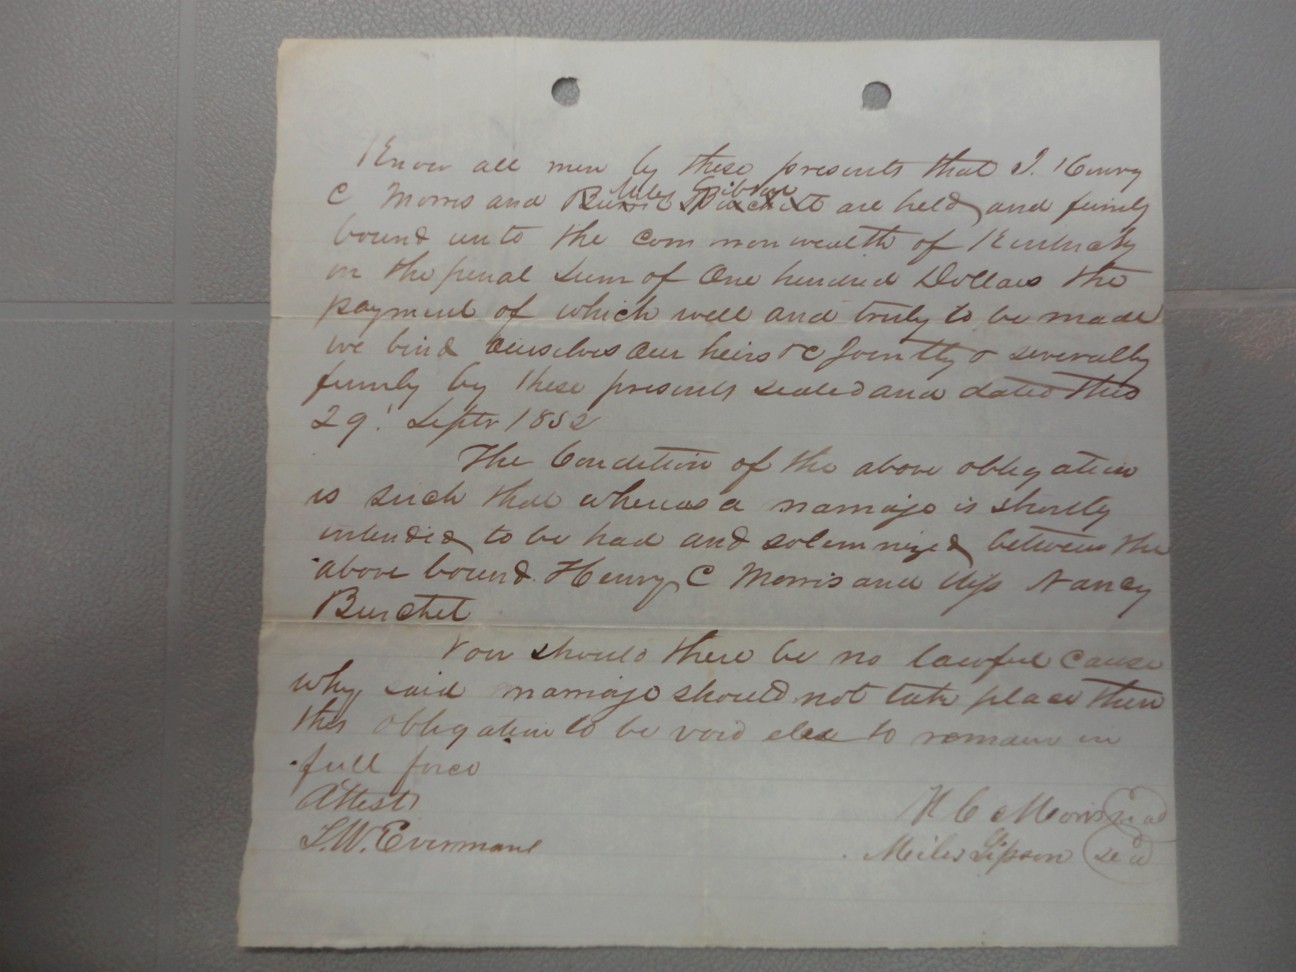 Know all men by these presents that I. Henry
C Morris and Miles Gibson are held and firmly
bound unto the commonwealth of Kentucky
in the penal sum of One hundred Dollars the
payment of which well and truly to be made
we bind ourselves our heirs &c Jointly & severally
firmly by these presents sealed and dated this
29! Septr 1852
The Condition of the above obligation
is such that whereas a marriage is shortly
intended to be had and solemnized between the
above bound Henry C Morris and Miss Nancy
Burchet
Now should there be no lawful cause
why said marriage should not take place then
this obligation to be void else to remain in
full force
Attest
H C Morris seal
S.W. Evermane
Miles Gipson seal